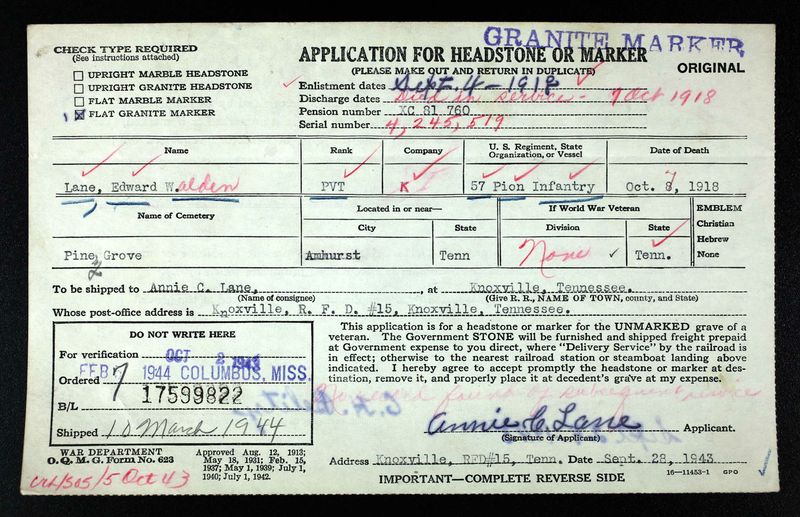 GRANITE MARKER
CHECK TYPE REQUIRED
(See instructions attached)
UPRIGHT MARBLE HEADSTONE
UPRIGHT GRANITE HEADSTONE
FLAT MARBLE MARKER
FLAT GRANITE MARKER
APPLICATION FOR HEADSTONE OR MARKER
(PLEASE MAKE OUT AND RETURN IN DUPLICATE)
ORIGINAL
Enlistment dates Sept. 4 - 1918
Discharge dates Died in service - 7 Oct 1918
Pension number XC 81 760
Serial number 4,245,519
Name Rank Company U. S. Regiment, State Organization, or Vessel Date of Death
Lane, Edward W.alden PVT K 57 Pion Infantry Oct. 8, 1918
7
Name of Cemetery Located in or near— If World War Veteran EMBLEM
City State Division State Christian
Hebrew
Pine Grove Amhurst Tenn None Tenn. None
To be shipped to Annie C. Lane, at Knoxville, Tennessee.
(Name of consignee) (Give R. R., NAME OF TOWN, county, and State)
Whose post-office address is Knoxville, R. F. D. #15, Knoxville, Tennessee.
DO NOT WRITE HERE
For verification OCT 2 1943
FEB 7 1944 COLUMBUS, MISS.
Ordered
17599822
B/L
Shipped 10 March 1944
This application is for a headstone or marker for the UNMARKED grave of a
veteran. The Government STONE will be furnished and shipped freight prepaid
at Government expense to you direct, where "Delivery Service" by the railroad is
in effect; otherwise to the nearest railroad station or steamboat landing above
indicated. I hereby agree to accept promptly the headstone or marker at des-
tination, remove it, and properly place it at decedent's grave at my expense.
Annie C. Lane Applicant.
(Signature of Applicant)
WAR DEPARTMENT
O. Q. M. G. Form No. 623
Approved Aug. 12, 1913;
May 18, 1931; Feb. 15,
1937; May 1, 1939; July 1,
1940; July 1, 1942.
Address Knoxville, RFD#15, Tenn. Date Sept. 28, 1943
16—11453-1 GPO
5 Oct 43
IMPORTANT—COMPLETE REVERSE SIDE